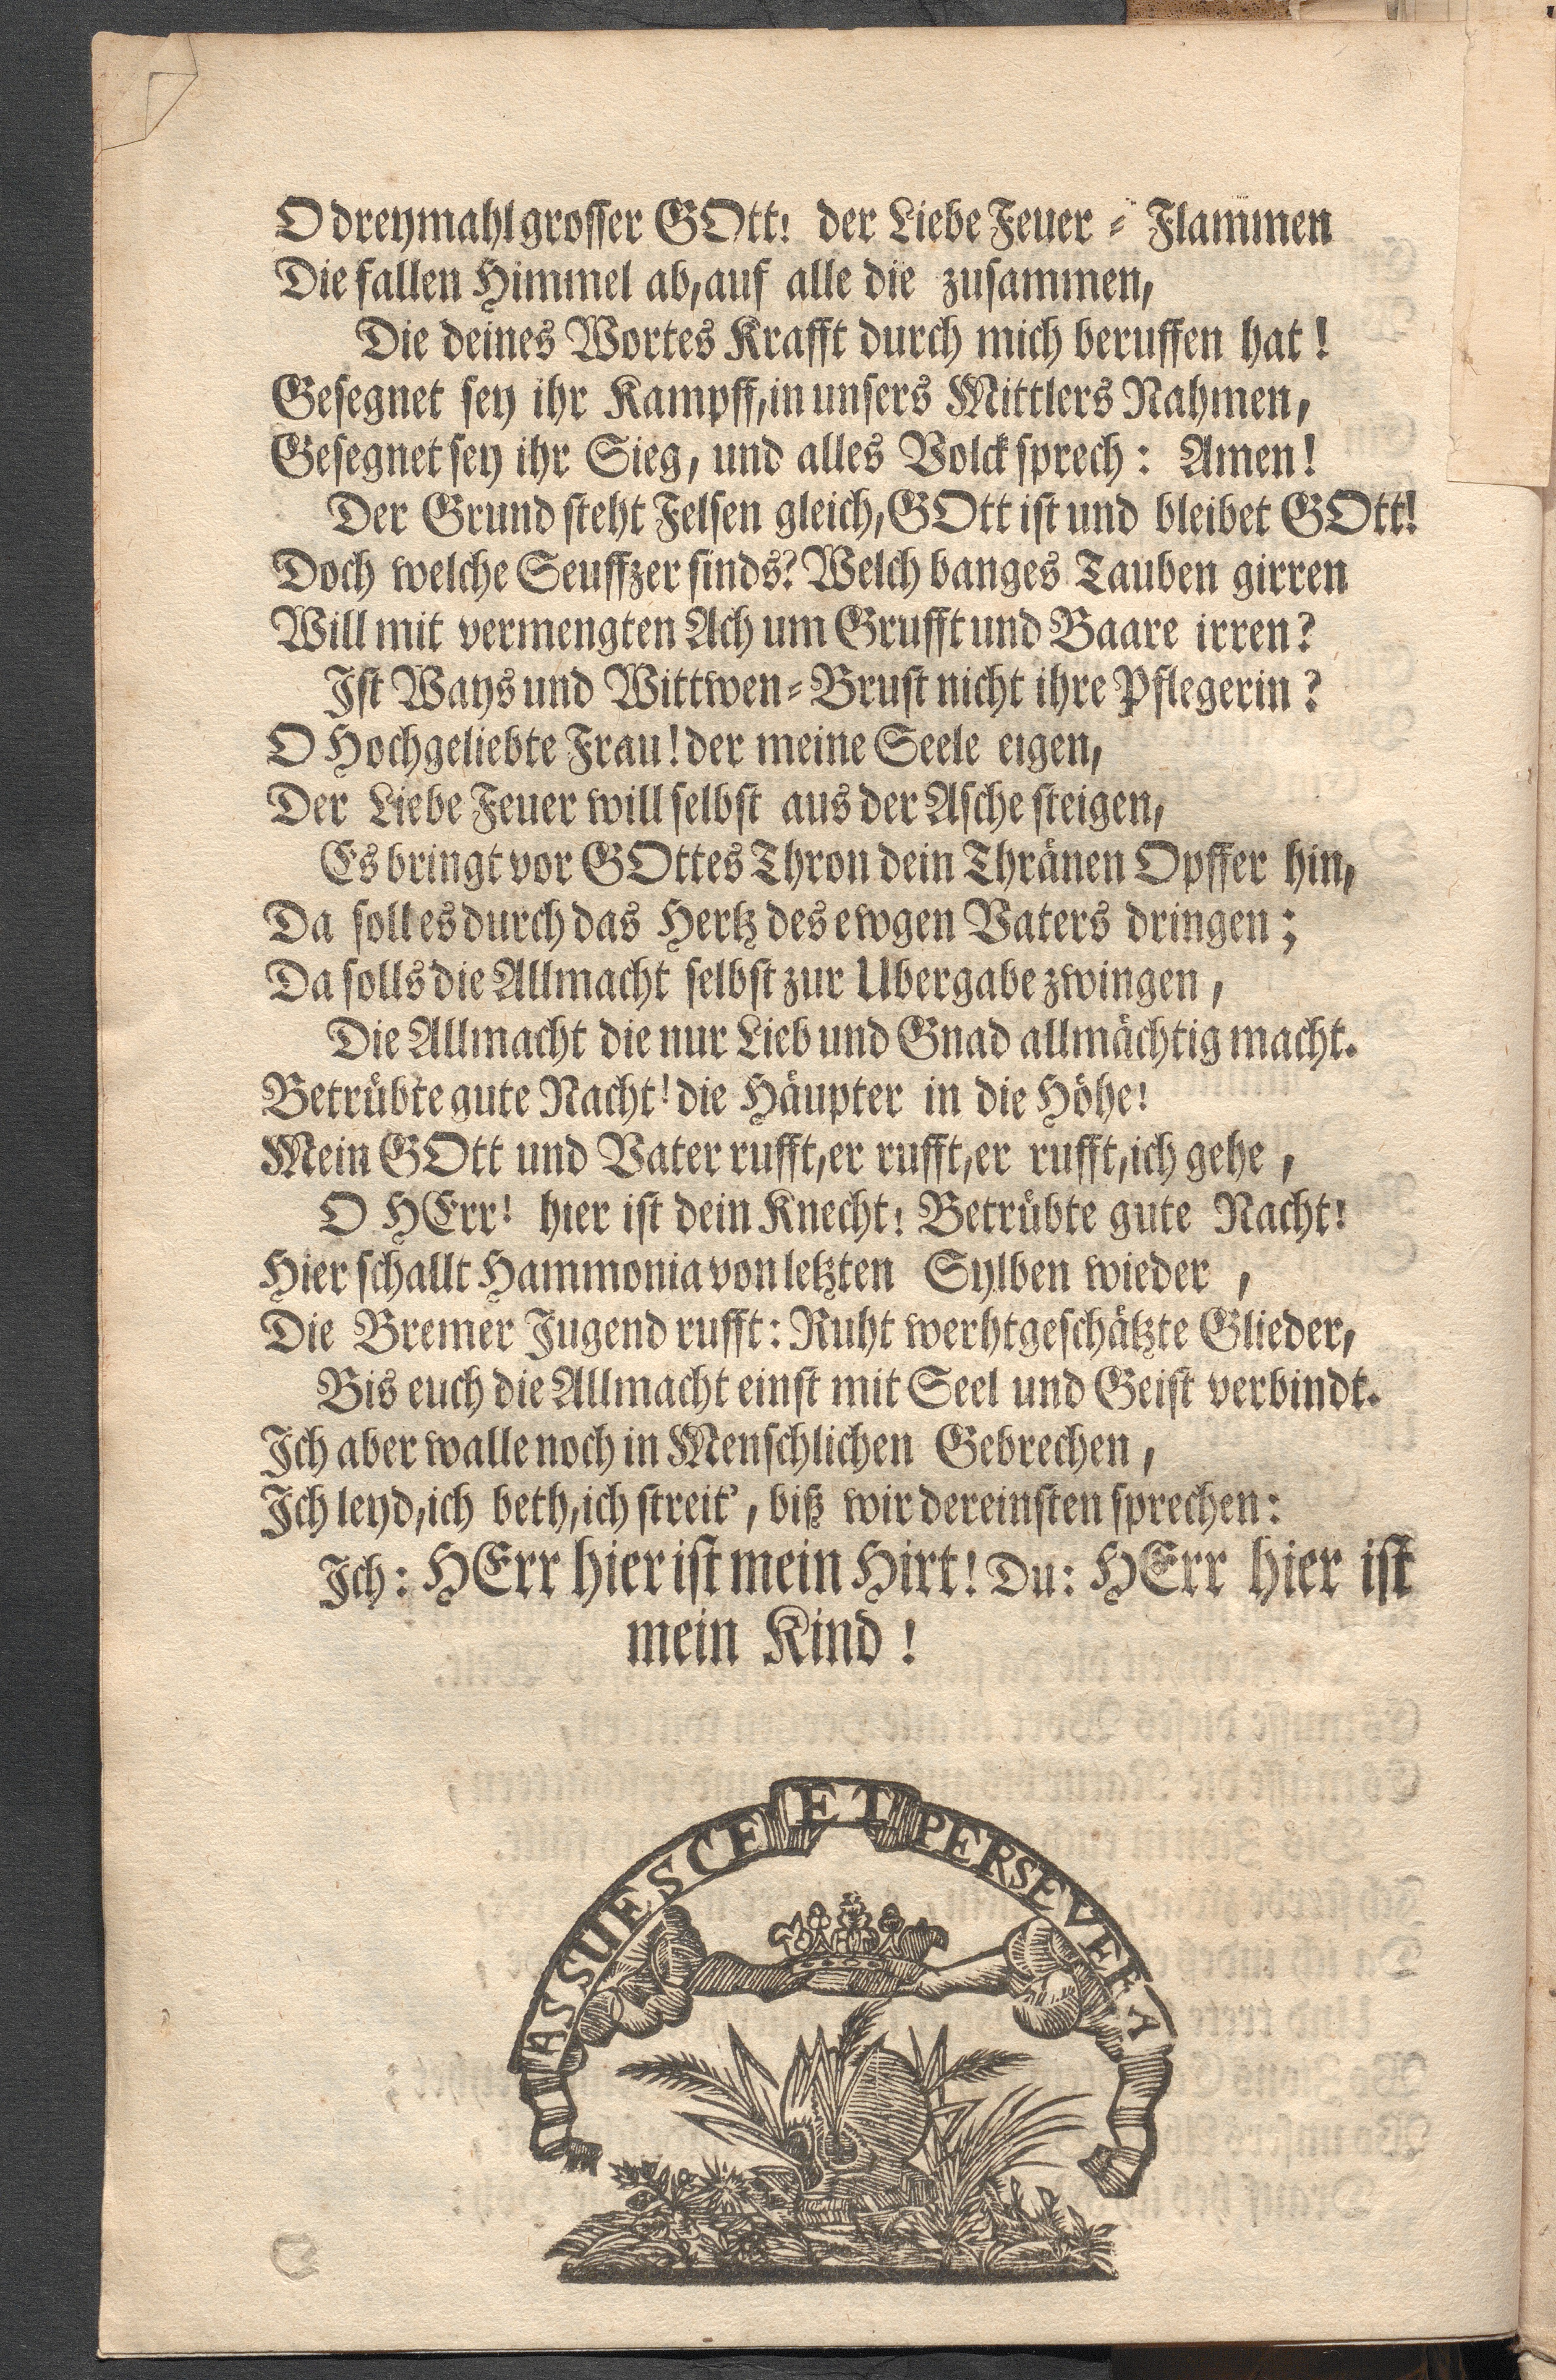 O dreymahl grosser GOtt! der Liebe Feuer-Flammen
Die fallen Himmel ab, auf alle die zusammen,
Die deines Wortes Krafft durch mich beruffen hat!
Gesegnet sey ihr Kampff, in unsers Mittlers Nahmen,
Gesegnet sey ihr Sieg, und alles Volck sprech: Amen!
Der Grund steht Felsen gleich, GOtt ist und bleibet GOtt!
Doch welche Seuffzer sinds? Welch banges Tauben girren
Will mit vermengten Ach um Grufft und Baare irren?
Ist Ways und Wittwen-Brust nicht ihre Pflegerin?
O Hochgeliebte Frau! der meine Seele eigen,
Der Liebe Feuer will selbst aus der Asche steigen,
Es bringt vor GOttes Thron dein Thränen Opffer hin,
Da soll es durch das Hertz des ewgen Vaters dringen;
Da solls die Allmacht selbst zur Ubergabe zwingen,
Die Allmacht die nur Lieb und Gnad allmächtig macht.
Betrübte gute Nacht! die Häupter in die Höhe!
Mein GOtt und Vater rufft, er rufft, er rufft, ich gehe,
O HErr! hier ist dein Knecht! Betrübte gute Nacht!
Hier schallt Hammonia von letzten Sylben wieder,
Die Bremer Jugend rufft: Ruht werhtgeschätzte Glieder,
Bis euch die Allmacht einst mit Seel und Geist verbindt.
Ich aber walle noch in Menschlichen Gebrechen,
Ich leyd, ich beth, ich streit', biß wir dereinsten sprechen:
Ich: HErr hier ist mein Hirt! Du: HErr hier ist
mein Kind!
ASSUESCE ET PERSEVERA